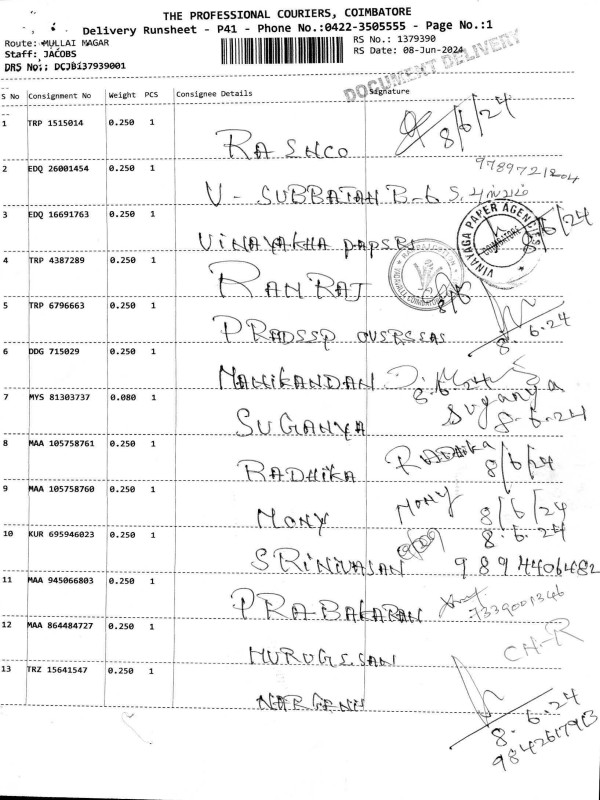 THE PROFESSIONAL COURIERS, COIMBATORE
Delivery Runsheet - P41 - Phone No.:0422-3505555 - Page No.:1
Route: MULLAI NAGAR
RS No.: 1379390
Staff: JACOBS
RS Date: 08-Jun-2024
DRS No.: DCJB137939001
DOCUMENT DELIVERY
S No Consignment No Weight PCS Consignee Details Signature
1 TRP 1515014 0.250 1
RASHCO 8/6/24
2 EDQ 26001454 0.250 1
V - SUBBAIAH B-6
3 EDQ 16691763 0.250 1
VINAYAKHA PAPSRS 8/6/24
VINAYAGA PAPER AGENCIES
COIMBATORE
4 TRP 4387289 0.250 1
RAMRAJ 8/6
5 TRP 6796663 0.250 1
PRADSSP OVSRSSAS 8.6.24
6 DDG 715029 0.250 1
MANIKANDAN 8.6.24
7 MYS 81303737 0.080 1
SUGANYA Suganya
8.6.24
8 MAA 105758761 0.250 1
RADHIKA Radhika 8/6/24
9 MAA 105758760 0.250 1
MONY MONY 8/6/24
10 KUR 695946023 0.250 1
8.6.24
SRINIVASAN 9894406482
11 MAA 945066803 0.250 1
PRABAKARAN 7339001346
12 MAA 864484727 0.250 1
MURUGESAN CH-R
13 TRZ 15641547 0.250 1
8.6.24
9842617913